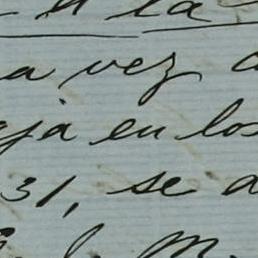 la
a vez
aja en los
31, se a